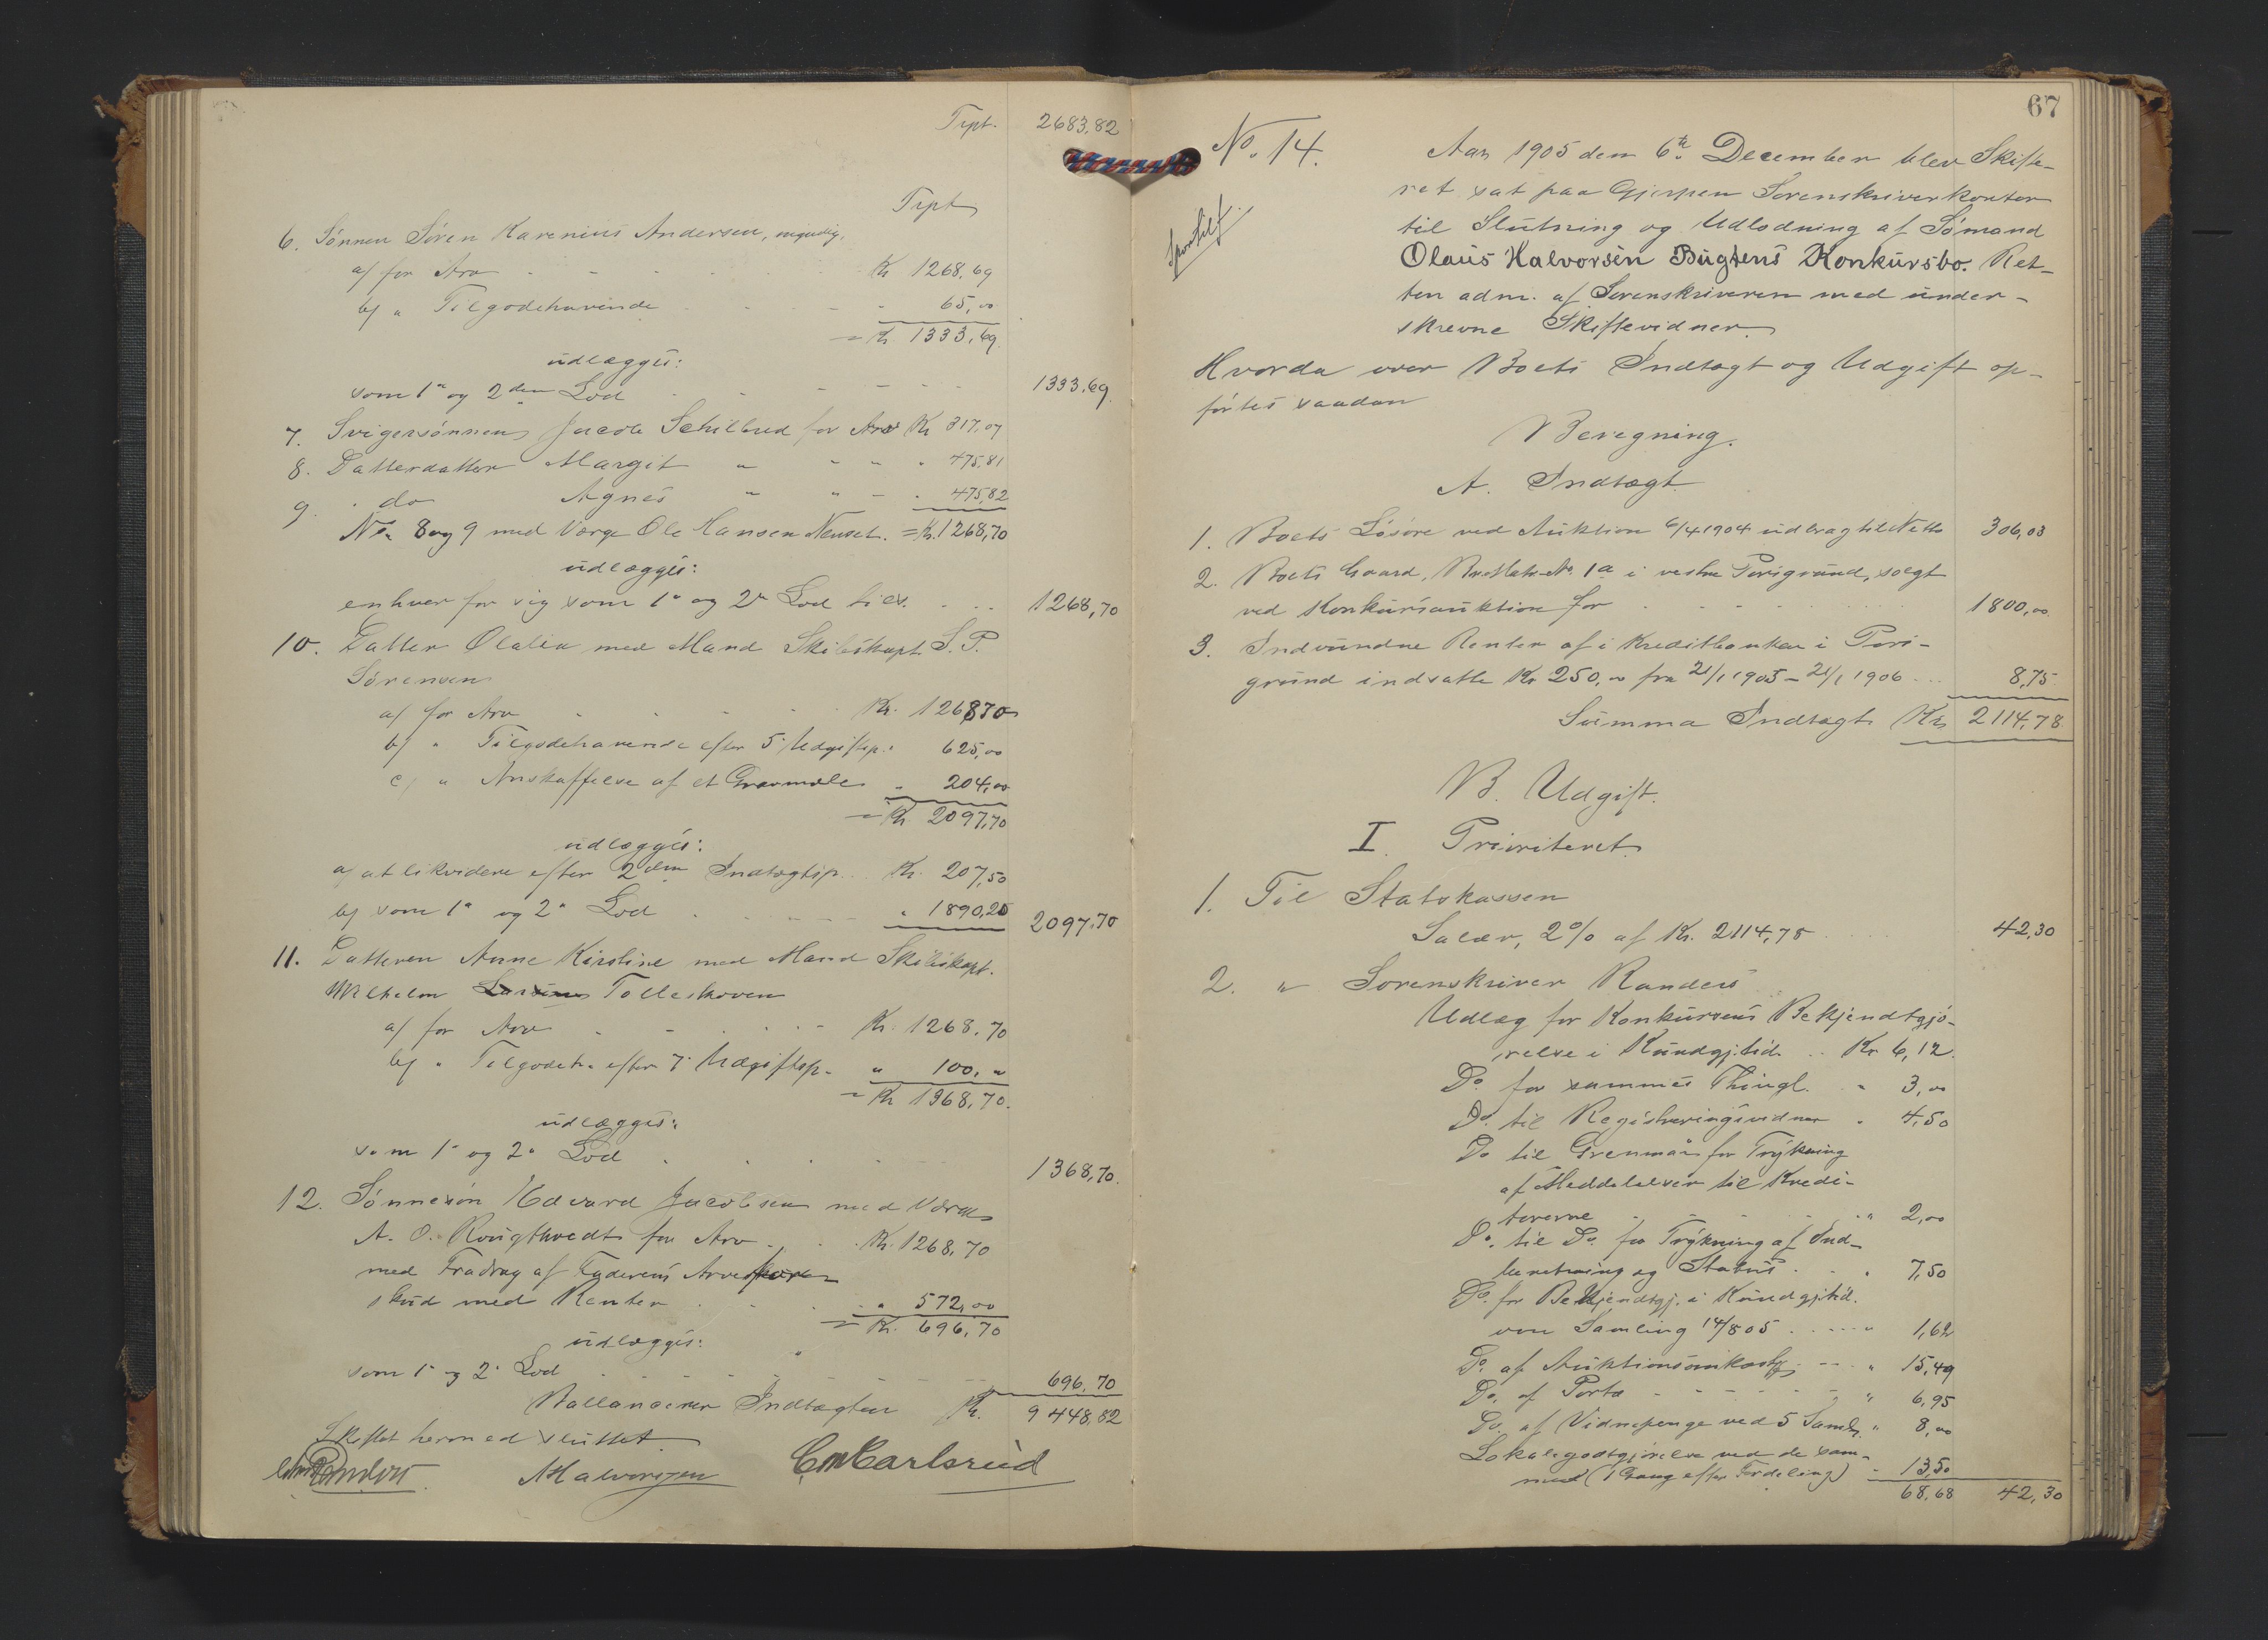 Trpt. 2683,82
Trpt
6. Sønnen Søren Karenius Andersen, myndig,
a/ for Arv Kr 1268,69
b/ " Tilgodehavende - 65,00
= Kr. 1333,69.
udlægges:
som 1ª og 2den Lod 1333,69.
7. Svigersønnen Jacob Schilbred for Arv Kr 317,07
8. Datterdatter Margit " " " " 475,81
9. do Agnes " " - " 475,82
No. 8 og 9 med Værge Ole Hansen = Kr. 1268,70
udlægges:
enhver for sig som 1ª og 2ª Lod tils. 1268,70
10. Datter Olalia med Mand Skibskapt. S. P.
Sørensen
a/ for Arv Kr. 1268,70
b/ " Tilgodehavende efter 5. Udgiftsp. " 625,00
c/ " Anskaffelse af et Gravmæle " 204,00
= Kr. 2097,70
udlægges:
a/ at likvidere efter 2den Indtægtsp. Kr. 207,50
b/ som 1ª og 2ª Lod " 1890,20 2097,70
11. Datteren Anne Kirstine med Mand Skibskapt.
Wilhelm Tolleskoven
a/ for Arv Kr. 1268,70
b/ " Tilgodeh. efter 7. Udgiftsp. " 100, "
= Kr 1368,70.
udlægges:
som 1ª og 2ª Lod 1368,70.
12. Sønnesøn Edvard Jacobsen med Værge
A. O. Rougthvedt for Arv Kr. 1268,70
med Fradrag af Faderens Arvefor
skud med Renter " 572,00
= Kr. 696,70
udlægges:
som 1ª og 2ª Lod 696,70
Ballancerer Indtægten Kr. 9448,82
Skiftet hermed sluttet.
Randers AHalvorsen CmCarlsrud
67
No. 14. Aar 1905 den 6te December blev Skifte-
ret sat paa Gjerpen Sorenskriverkontor
til Slutning og Udlodning af Sømand
Olaus Halvorsen Bugtens Konkursbo. Ret-
ten adm. af Sorenskriveren med under-
skrevne Skiftevidner.
Hvorda over Boets Indtægt og Udgift op-
førtes saadan
Beregning.
A. Indtægt.
1. Boets Løsøre ved Auktion 6/4 1904 udbragt til Netto 306,03
2. Boets Gaard, Br. Matr. No. 1a i vestre Porsgrund, solgt
ved Konkursauktion for 1800,00
3. Indvundne Renter af i Kreditbanken i Pors-
grund indsatte Kr 250,00 fra 21/1 1905 - 21/1 1906 8,75
Summa Indtægt Kr. 2114,78
B. Udgift.
I. Prioriteret.
1. Til Statskassen
Salær, 2% af Kr. 2114,78 42,30
2. " Sorenskriver Randers
Udlæg for Konkursens Bekjendtgjø-
relse i Kundgj.tid. Kr 6,12
Do. for sammes Thingl. " 3,00
Do. til Registreringsvidner " 4,50
Do til Grenmar for Trykning
af Meddelelser til Kredi-
torerne " 2,00
Do. til Do. for Trykning af Ind-
beretning og Status " 7,50
Do. for Bekjendtgj. i Kundgj.tid.
om Samling 14/8 05 " 1,62
Do. af Auktionsomkostg. " 15,49
Do. af Porto " 6,95
Do. af Vidnepenge ved 5 Samlg. " 8,00
Lokalegodtgjørelse ved de sam-
me (1 Gang efter Fordeling) " 13,50
68,68 42,30